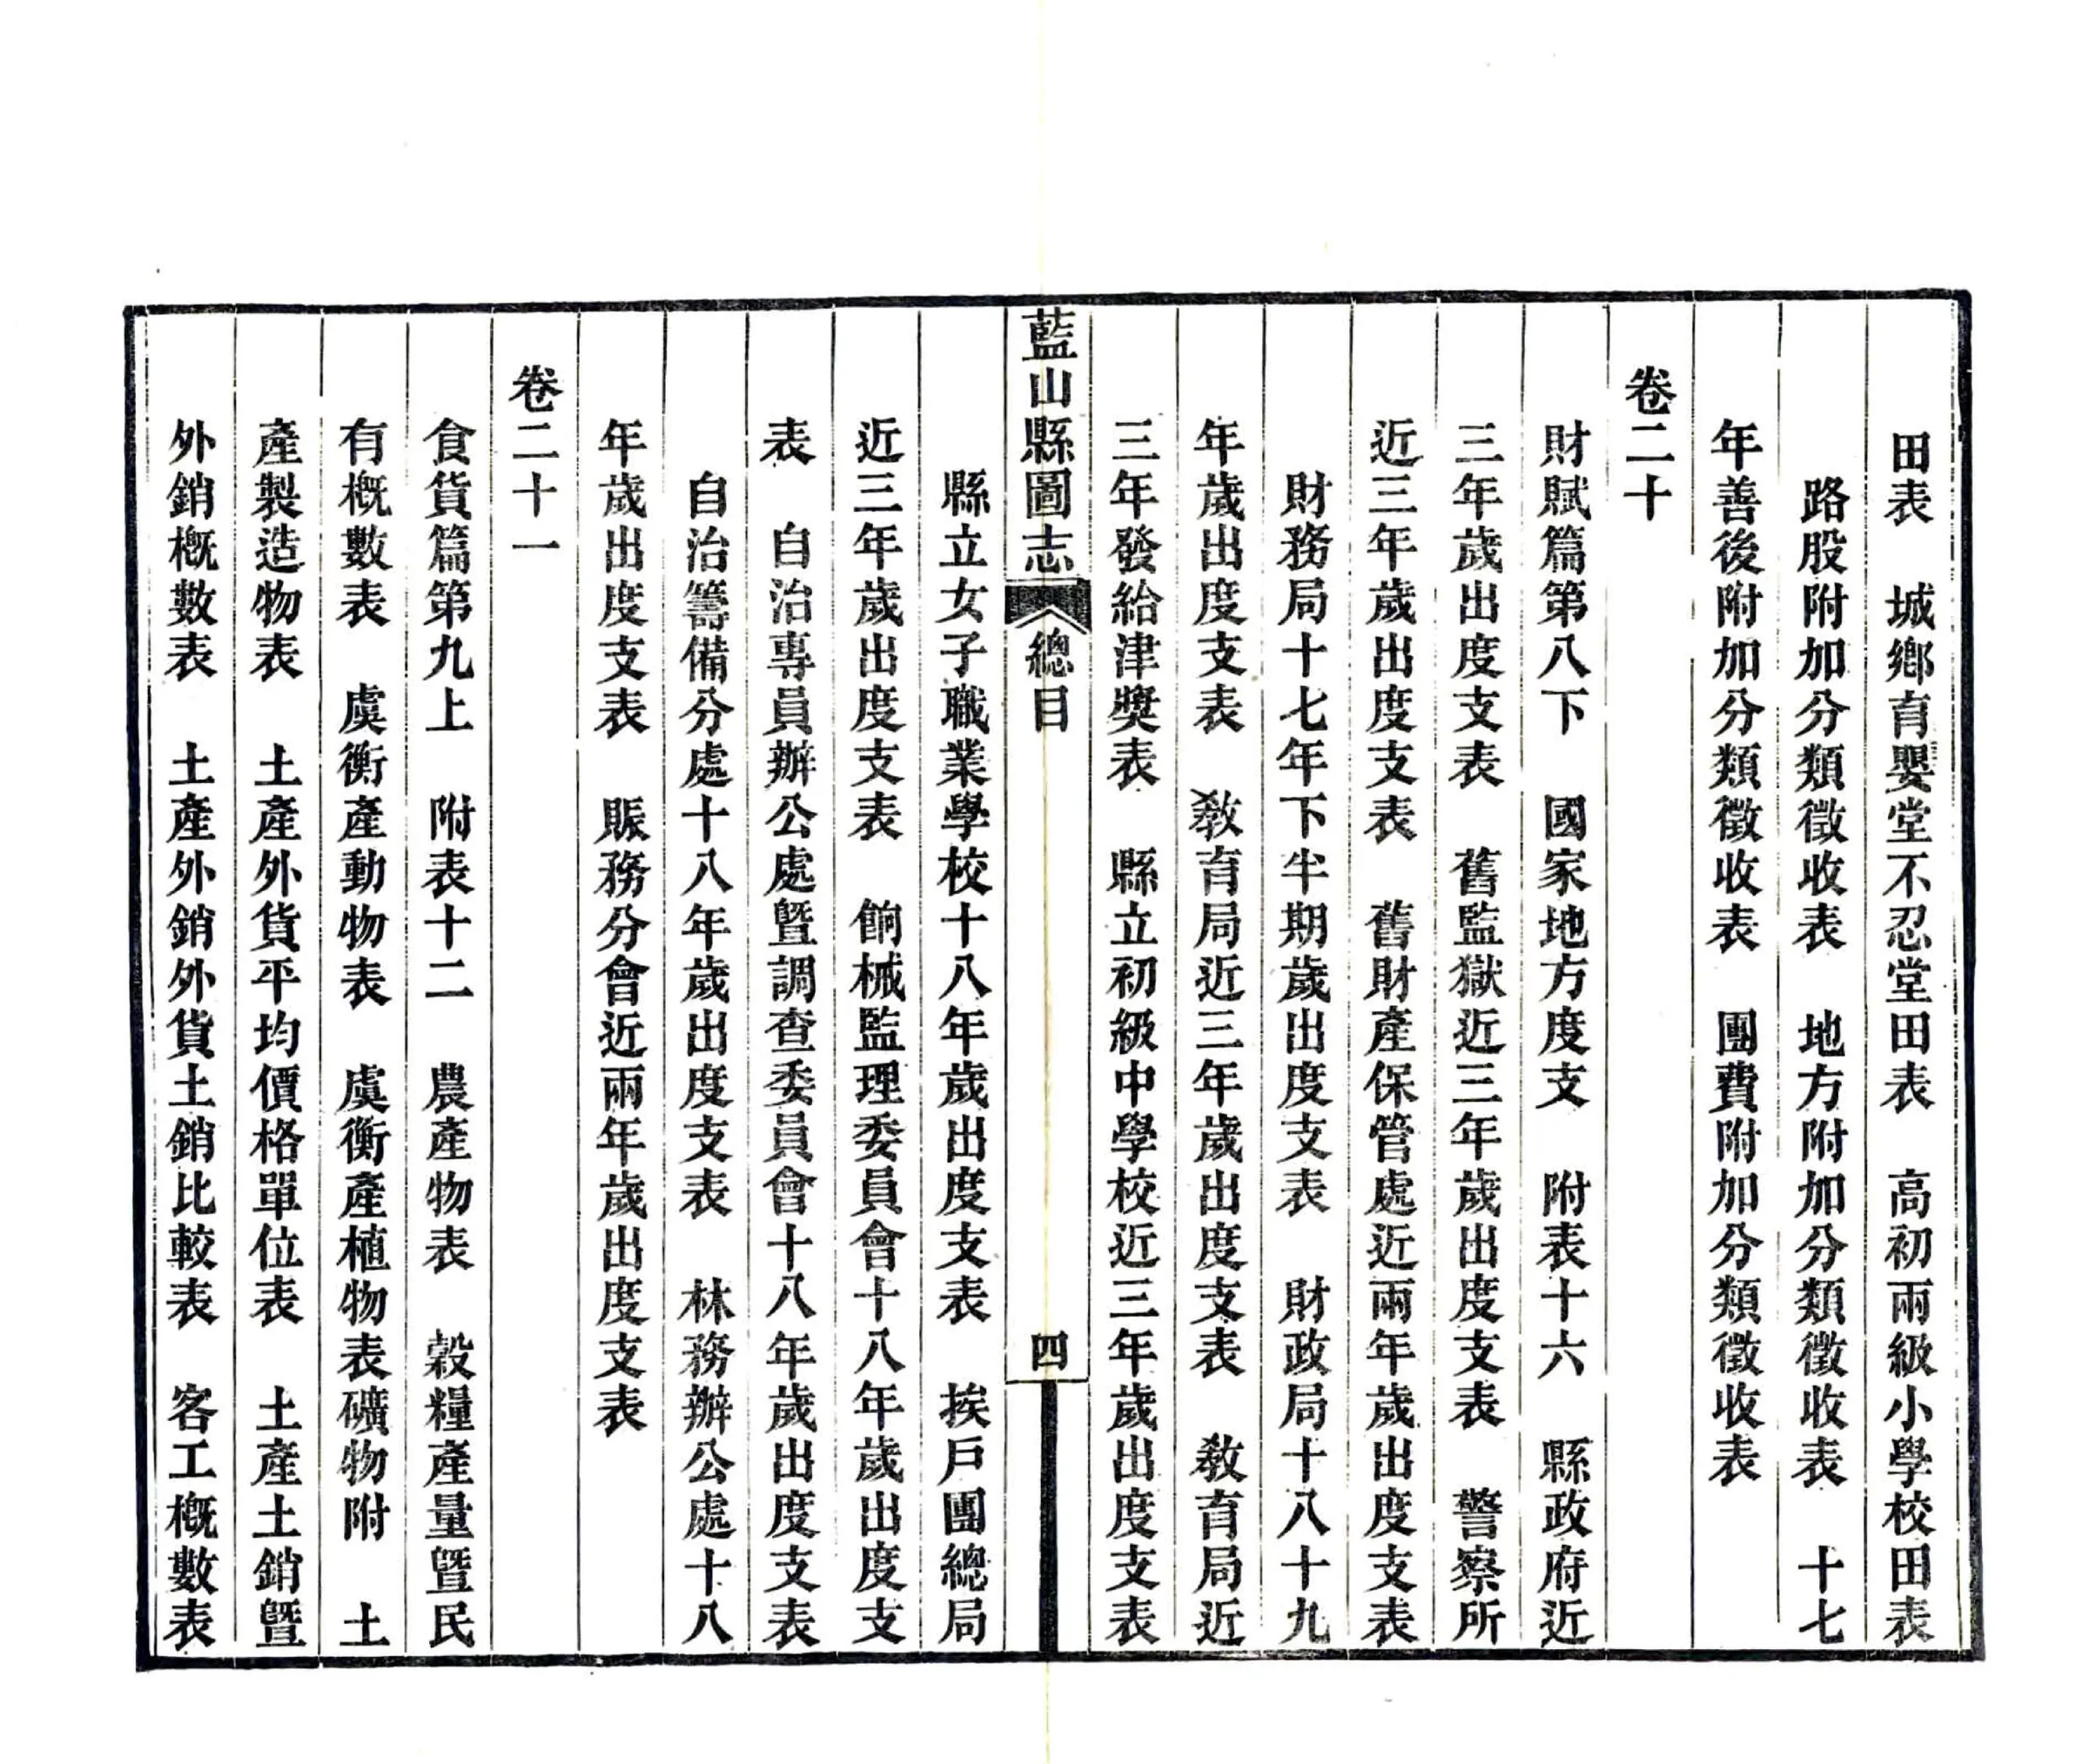 田表　城鄉育嬰堂不忍堂田表　高初兩級小學校田表
路股附加分類徵收表　地方附加分類徵收表　十七
年善後附加分類徵收表　團費附加分類徵收表
卷二十
財賦篇第八下　國家地方度支　附表十六　縣政府近
三年歲出度支表　舊監獄近三年歲出度支表　警察所
近三年歲出度支表　舊財產保管處近兩年歲出度支表
財務局十七年下半期歲出度支表　財政局十八十九
年歲出度支表　教育局近三年歲出度支表　教育局近
三年發給津獎表　縣立初級中學校近三年歲出度支表
藍山縣圖志　總目　四
縣立女子職業學校十八年歲出度支表　挨戶團總局
近三年歲出度支表　餉械監理委員會十八年歲出度支
表　自治專員辦公處暨調查委員會十八年歲出度支表
自治籌備分處十八年歲出度支表　林務辦公處十八
年歲出度支表　賑務分會近兩年歲出度支表
卷二十一
食貨篇第九上　附表十二　農產物表　穀糧產量暨民
有概數表　虞衡產動物表　虞衡產植物表礦物附　土
產製造物表　土產外貨平均價格單位表　土產土銷暨
外銷概數表　土產外銷外貨土銷比較表　客工概數表